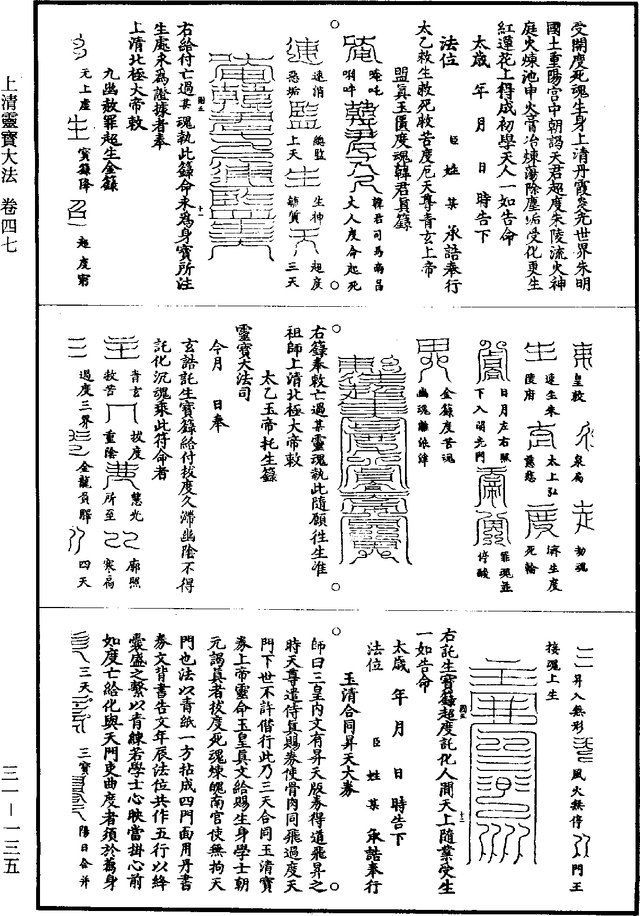 受開度死魂生身上清丹霞炎光世界朱明
國土重陽宮中朝謁天君超度朱陵流火神
庭火煉池申火膏冶煉蕩除塵垢受化更生
紅蓮花上得成初學天人一如告命
太歲　年　月　日　時告下
法位　臣　姓　某　承誥奉行
太乙救生救死救苦度厄天尊青玄上帝
盟真玉匱度魂韓君真籙
唵吒
唎吽
韓君司馬南昌
大人度命起死
速消
惡垢
總監
上天
生神
飾質
超度
三天
右給付亡過某魂執此籙命永為身寶所注
生處永為證據者奉
上清北極大帝敕
九幽赦罪超生金籙
元上虛
寶籙降
超度窮
上清靈寶大法　卷四七
皇敕
泉局
劫魂
速生朱
陵府
太上弘
慈慈
濟生度
死輪
日月左右照
下入明光門
罪魂並
停酸
金籙度苦魂
幽魂離
右籙奉敕亡過某靈魂執此隨願往生准
祖師上清北極大帝敕
太乙玉帝托生籙
靈寶大法司
今月　日奉
玄誥託生寶籙給付拔度久滯幽陰不得
託化沉魂乘此符命者
青玄
救苦
拔度
重陰
慧光
所至
廓照
寒扃
過度三界
金龍負驛
四天
昇入無形
風火無停
門王
接魂上生
右託生寶籙超度託化人間天上隨業受生
一如告命
太歲　年　月　日　時告下
法位　臣　姓　某　承誥奉行
玉清合同昇天大券
師曰三皇內文有昇天版券得道飛昇之
時天尊遣侍真賜券使骨肉同飛過度天
門下世不許偕行此乃三天合同玉清寶
券上帝靈命玉皇真文給賜生身學士朝
元謁真者拔度死魂煉魄南宮使無拘天
門也法以青紙一方拈成四門面用丹書
券文背書告文年辰法位共作五行以絳
囊盛之繫以青練若學士心映當掛心前
如度亡給化與天門吏曲度者須於舊身
三天
三寶
陽日合并
三一—一三五